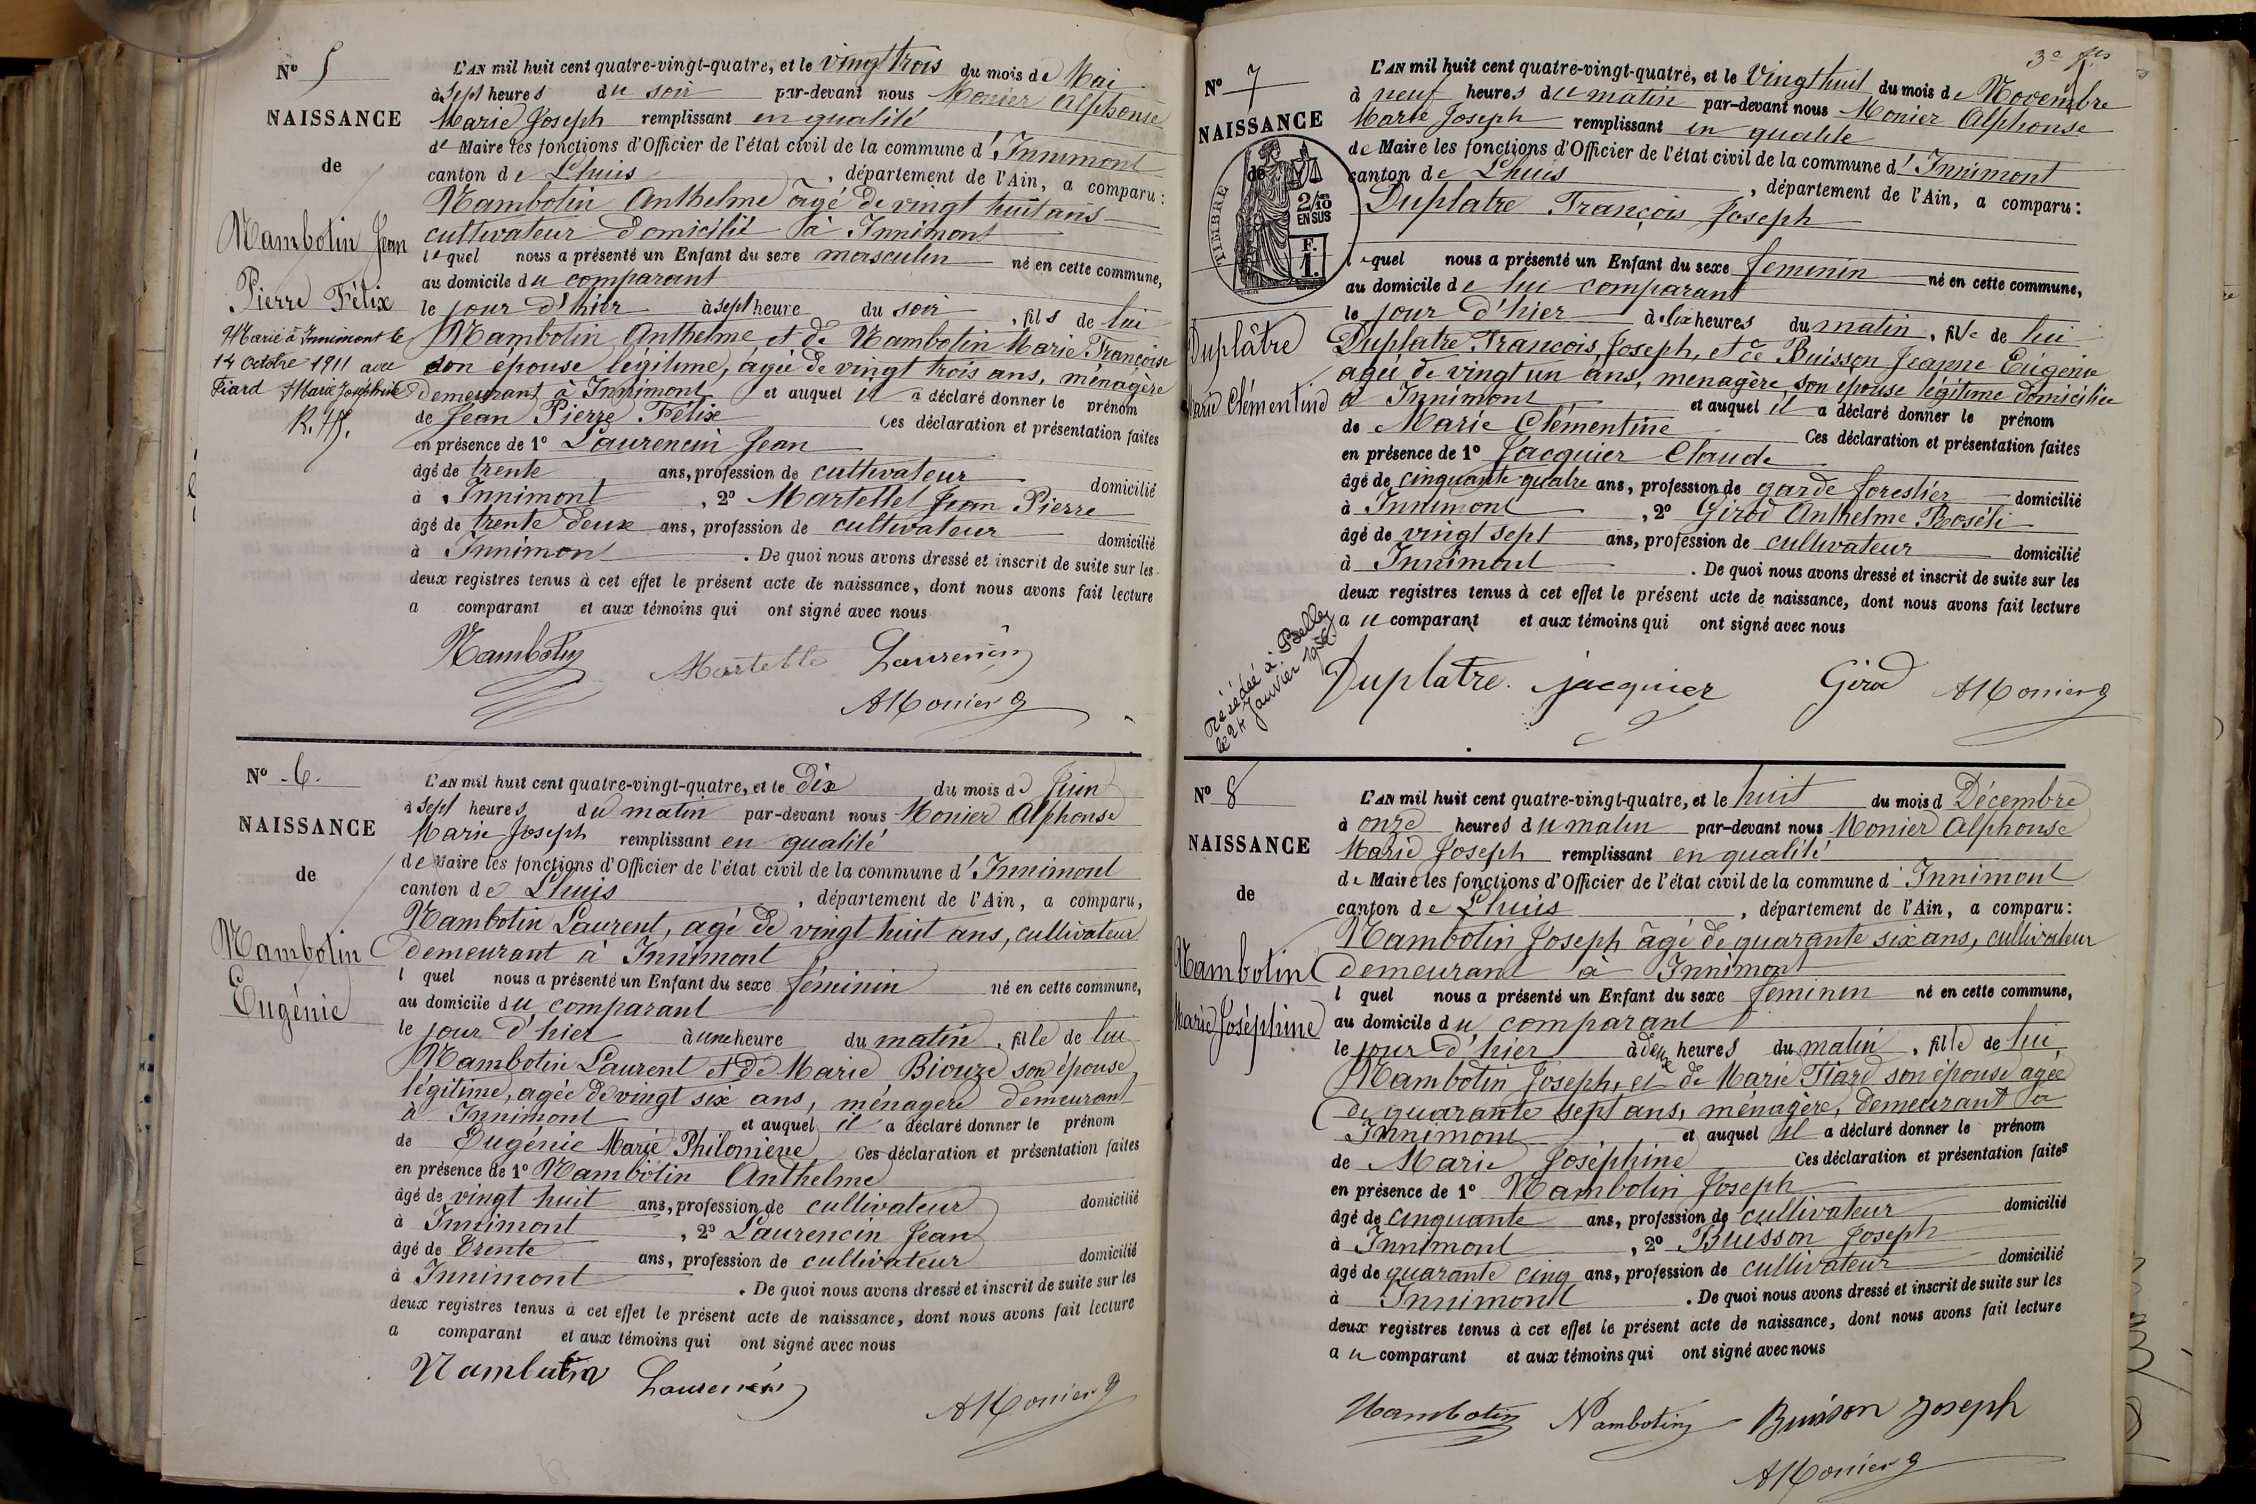 Nº 5
NAISSANCE
de
Nambotin Jean
Pierre Félix
Marié à Innimont le
14 octobre 1911 avec
Tiard Marie Joséphine
L'AN mil huit cent quatre-vingt-quatre, et le vingt trois du mois de Mai
à sept heures du soir par-devant nous Monier Alphonse
Marie Joseph remplissant en qualité
de Maire les fonctions d'Officier de l'état civil de la commune d'Innimont
canton de Lhuis, département de l'Ain, a comparu:
Nambotin Anthelme âgé de vingt huit ans
cultivateur domicilié à Innimont
lequel nous a présenté un Enfant du sexe masculin né en cette commune,
au domicile du comparant
le jour d'hier à sept heure du soir, fils de lui
Nambotin Anthelme et de Nambotin Marie Françoise
son épouse légitime, âgée de vingt trois ans, ménagère
demeurant à Innimont et auquel il a déclaré donner le prénom
de Jean Pierre Félix Ces déclaration et présentation faites
en présence de 1º Laurencin Jean
âgé de trente ans, profession de cultivateur domicilié
à Innimont, 2º Martellet Jean Pierre
âgé de trente deux ans, profession de cultivateur domicilié
à Innimont. De quoi nous avons dressé et inscrit de suite sur les
deux registres tenus à cet effet le présent acte de naissance, dont nous avons fait lecture
a comparant et aux témoins qui ont signé avec nous
Nambotin Martellet Laurencin
AMonier
Nº 6.
NAISSANCE
de
Nambotin
Eugénie
L'AN mil huit cent quatre-vingt-quatre, et le dix du mois de Juin
à sept heures du matin par-devant nous Monier Alphonse
Marie Joseph remplissant en qualité
de Maire les fonctions d'Officier de l'état civil de la commune d'Innimont
canton de Lhuis, département de l'Ain, a comparu,
Nambotin Laurent, agé de vingt huit ans, cultivateur
demeurant à Innimont
l quel nous a présenté un Enfant du sexe féminin né en cette commune,
au domicile du comparant
le jour d'hier à une heure du matin, fille de lui
Nambotin Laurent et de Marie Biouze son épouse
légitime, agée de vingt six ans, ménagere demeurant
à Innimont et auquel il a déclaré donner le prénom
de Eugénie Marie Philomène Ces déclaration et présentation faites
en présence de 1º Nambotin Anthelme
âgé de vingt huit ans, profession de cultivateur domicilié
à Innimont, 2º Laurencin Jean
âgé de trente ans, profession de cultivateur domicilié
à Innimont. De quoi nous avons dressé et inscrit de suite sur les
deux registres tenus à cet effet le présent acte de naissance, dont nous avons fait lecture
a comparant et aux témoins qui ont signé avec nous
Nambotin Laurencin
AMonier
Nº 7
NAISSANCE
de
TIMBRE
2/10
EN SUS
F.
1.
Duplâtre
Marie Clémentine
Décédée à Belley
le 24 Janvier
L'AN mil huit cent quatre-vingt-quatre, et le vingt huit du mois de Novembre
à neuf heures du matin par-devant nous Monier Alphonse
Marie Joseph remplissant en qualité
de Maire les fonctions d'Officier de l'état civil de la commune d'Innimont
canton de Lhuis, département de l'Ain, a comparu:
Duplatre François Joseph
l quel nous a présenté un Enfant du sexe feminin né en cette commune,
au domicile de lui comparant
le jour d'hier à six heures du matin, fille de lui
Duplatre François Joseph, et de Buisson Jeanne Eugénie
agée de vingt un ans, menagère son épouse légitime domiciliée
à Innimont et auquel il a déclaré donner le prénom
de Marie Clémentine Ces déclaration et présentation faites
en présence de 1º Jacquier Claude
âgé de cinquante quatre ans, profession de garde forestier domicilié
à Innimont, 2º Girod Anthelme
âgé de vingt sept ans, profession de cultivateur domicilié
à Innimont. De quoi nous avons dressé et inscrit de suite sur les
deux registres tenus à cet effet le présent acte de naissance, dont nous avons fait lecture
au comparant et aux témoins qui ont signé avec nous
Duplatre. jacquier Girod AMonier
Nº 8
NAISSANCE
de
Nambotin
Marie Joséphine
L'AN mil huit cent quatre-vingt-quatre, et le huit du mois d Décembre
à onze heures du matin par-devant nous Monier Alphonse
Marie Joseph remplissant en qualité
de Maire les fonctions d'Officier de l'état civil de la commune d'Innimont
canton de Lhuis, département de l'Ain, a comparu:
Nambotin Joseph âgé de quarante six ans, cultivateur
demeurant à Innimont
l quel nous a présenté un Enfant du sexe feminin né en cette commune,
au domicile du comparant
le jour d'hier à deux heures du matin, fille de lui
Nambotin Joseph, et de Marie Tiard son épouse agée
de quarante sept ans, ménagère, demeurant à
Innimont et auquel il a déclaré donner le prénom
de Marie Joséphine Ces déclaration et présentation faites
en présence de 1º Nambotin Joseph
âgé de cinquante ans, profession de cultivateur domicilié
à Innimont, 2º Buisson Joseph
âgé de quarante cinq ans, profession de cultivateur domicilié
à Innimont. De quoi nous avons dressé et inscrit de suite sur les
deux registres tenus à cet effet le présent acte de naissance, dont nous avons fait lecture
au comparant et aux témoins qui ont signé avec nous
Nambotin Nambotin Buisson Joseph
AMonier